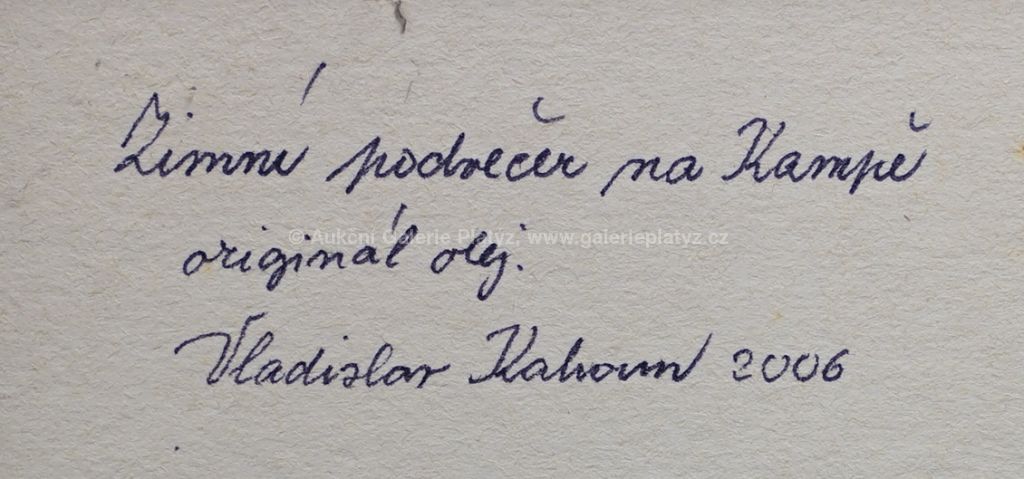 Zimní podvečer na Kampě
© Aukční Galerie Platýz, www.galerieplatyz.cz
originál olej.
Vladislav Kahoun 2006